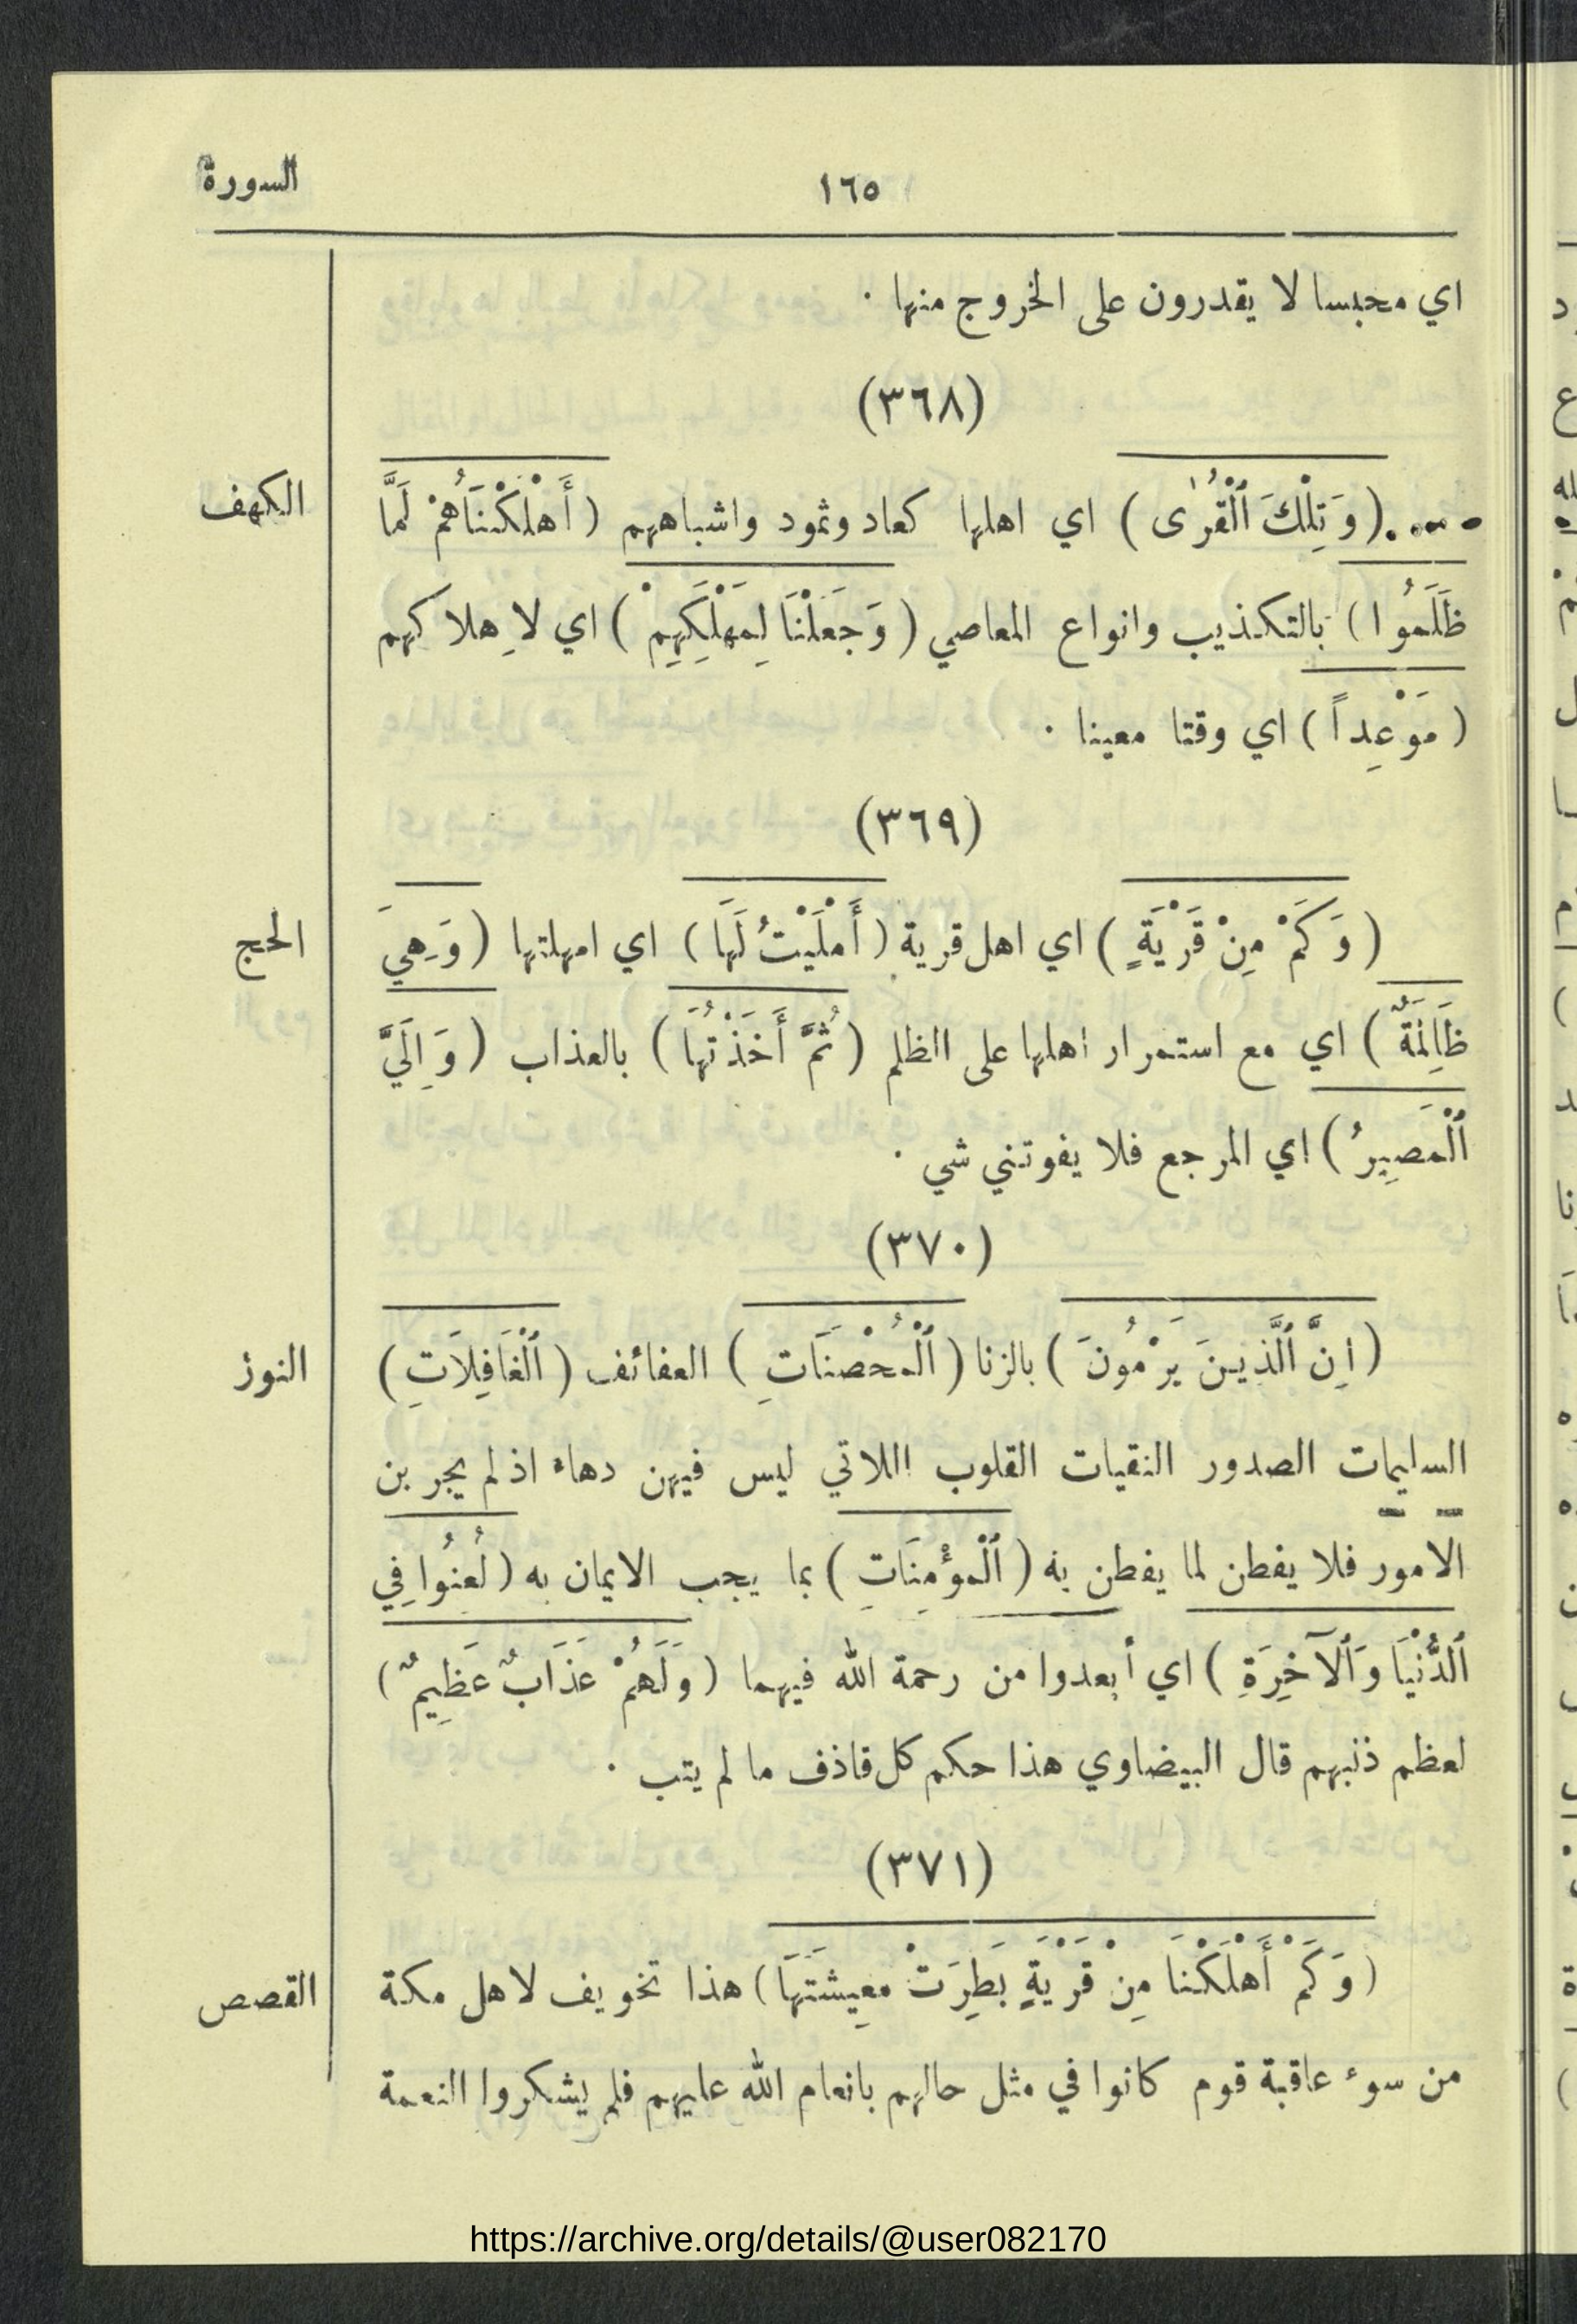 السورة
١٦٥
اي محبسا لا يقدرون على الخروج منها ·
(٣٦٨)
الكهف
(وَتِلْكَ ٱلْقُرٰى) اي اهلها كعاد وثمود واشباههم (أَهْلَكْنَاهُمْ لَمَّا
ظَلَمُوا) بالتكذيب وانواع المعاصي (وَجَعَلْنَا لِمَهْلَكِهِمْ) اي لاِهلاكهم
(مَوْعِداً) اي وقتا معينا ·
(٣٦٩)
الحج
(وَكَمْ مِنْ قَرْيَةٍ) اي اهل قرية (أَمْلَيْتُ لَهَا) اي امهلتها (وَهِيَ
ظَالِمَةٌ) اي مع استمرار اهلها على الظلم (ثُمَّ أَخَذْتُهَا) بالعذاب (وَإِلَيَّ
ٱلْمَصِيرُ) اي المرجع فلا يفوتني شي ·
(٣٧٠)
النور
(إِنَّ ٱلَّذِينَ يَرْمُونَ) بالزنا (ٱلْمُحْصَنَاتِ) العفائف (ٱلْغَافِلَاتِ)
السليمات الصدور النقيات القلوب اللاتي ليس فيهن دهاء اذ لم يجربن
الامور فلا يفطن لما يفطن به (ٱلْمؤْمِنَاتِ) بما يجب الايمان به (لُعِنُوا فِي
ٱلدُّنْيَا وَٱلْآخِرَةِ) اي أبعدوا من رحمة الله فيهما (وَلَهُمْ عَذَابٌ عَظِيمٌ)
لعظم ذنبهم قال البيضاوي هذا حكم كل قاذف ما لم يتب ·
(٣٧١)
القصص
(وَكَمْ أَهْلَكْنَا مِنْ قَرْيَةٍ بَطِرَتْ مَعِيشَتَهَا) هذا تخويف لاهل مكة
من سوء عاقبة قوم كانوا في مثل حالهم بانعام الله عليهم فلم يشكروا النعمة
https://archive.org/details/@user082170